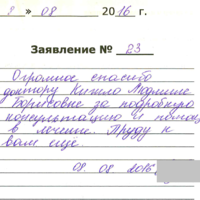 8 » 08 2016 г.
Заявление № 23
Огромное спасибо
доктору Кипло Людмиле
Борисовне за подробную
консультацию и помощь
в лечение. Приду к
вам ещё.
08. 08. 2016